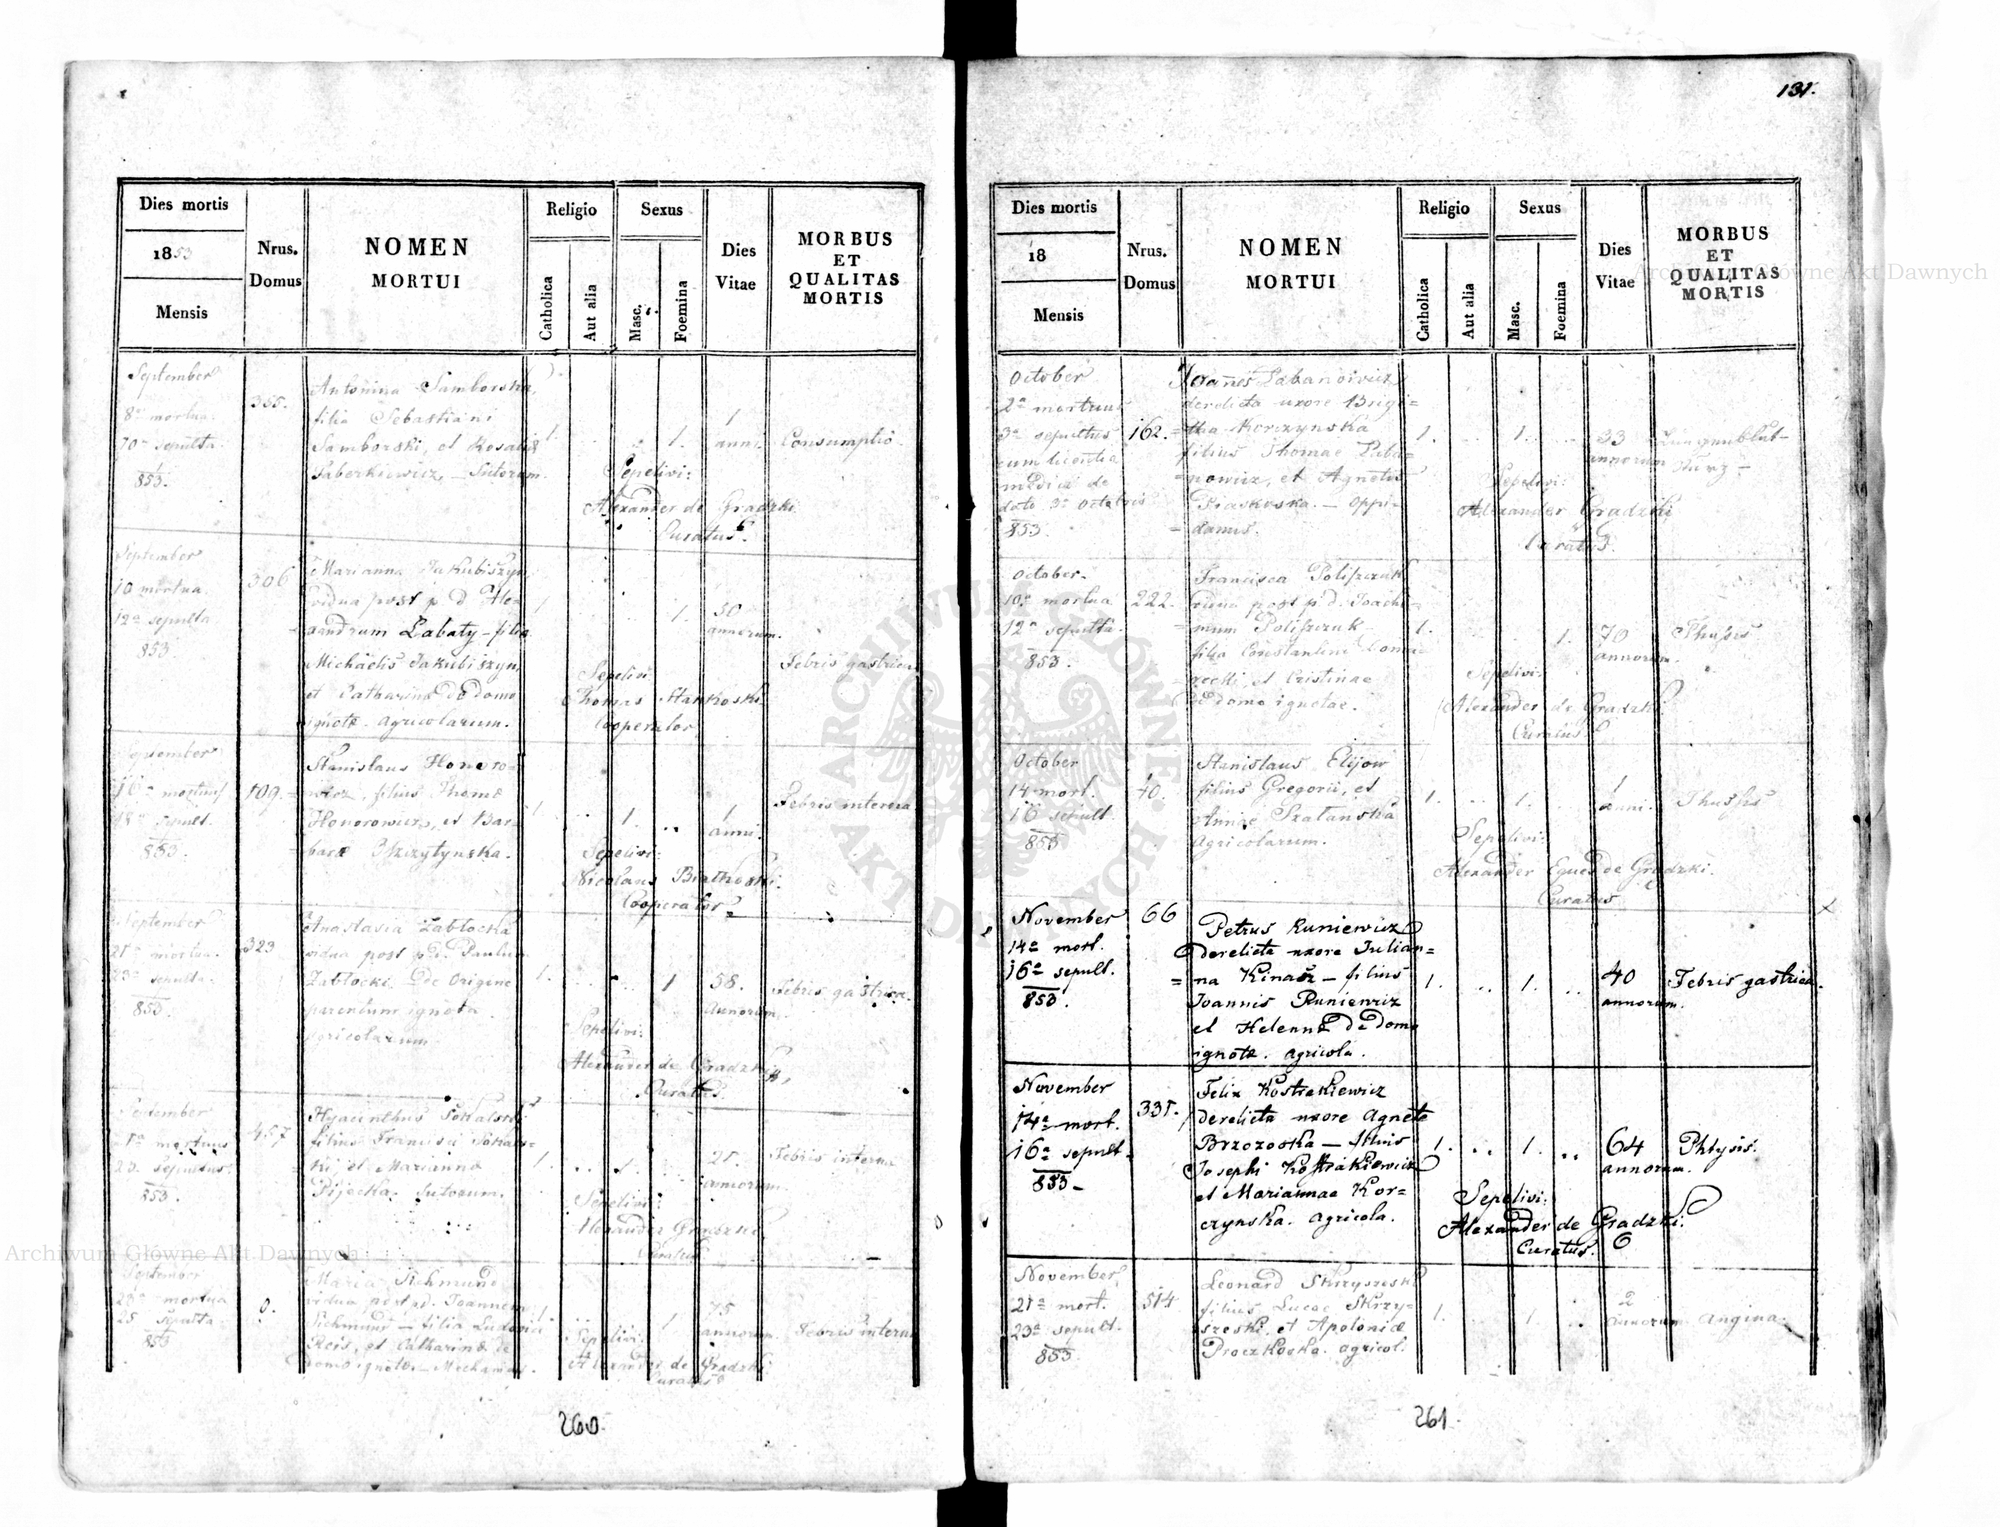 Dies mortis
1853
Mensis
Nrus.
Domus
NOMEN
MORTUI
Religio
Catholica
Aut alia
Sexus
Masc.
Foemina
Dies
Vitae
MORBUS
ET
QUALITAS
MORTIS
September
8a mortua
10a sepulta
853.
355.
Antonina Samborska,
filia Sebastiani
Samborski, et Rosaliæ
Saberkiewicz, – Sutorum.
1.
1.
1
anni.
Consumptio
Sepelivi:
Alexander de Gradzki
Curatus.
September
10 mortua
12a sepulta
853
306
Marianna Jakubiszyn
vidua post p d Ale-
xandrum Labaty – filia
Michaelis Jakubiszyn,
et Catharinæ de domo
ignotæ. agricolarum.
1
1.
50
annorum.
Febris gastrica
Sepelivi
Thomas Stankoski
Cooperator
September
16a mortuus
18a sepult.
853.
109.
Stanislaus Honoro-
wicz, filius Thomæ
Honorowicz, et Bar-
=baræ Szczytynska.
1.
1.
1
anni.
Febris interna
Sepelivi:
Nicolaus
Cooperator
September
21a mortua.
23a sepulta.
853.
323
Anastasia Zabłocka
vidua post p.d. Paulum
Zabłocki. De origine
parentum ignota
agricolarum
1.
1
58.
Annorum.
Febris gastrica.
Sepelivi:
Alexander de Gradzki
Curatus.
September
mortuus
23. sepultus.
853.
457
Hyacinthus Sokalski
filius Francisci Sokals-
ki et Marianna
Sutorum.
1.
1.
21.
annorum.
Febris interna
Sepelivi:
Alexander Gradzki
Curatus
September
mortua
25 sepulta
853
Maria Sichmund
vidua post p.d. Joannem
Sichmund – filia Ludovici
Reis, et Catharinæ de
domo ignotæ –
1.
1
75
annorum
Febris interna
Sepelivi:
Alexander de Gradzki
Curatus
260.
131.
Dies mortis
18
Mensis
Nrus.
Domus
NOMEN
MORTUI
Religio
Catholica
Aut alia
Sexus
Masc.
Foemina
Dies
Vitae
MORBUS
ET
QUALITAS
MORTIS
October
2a mortuus
3a sepultus
cum licentia
medici de
dato 3a Octobris
853.
162.
Joannes Labanowicz,
derelicta uxore Brigi=
=tta Korczynska
filius Thomae Laba-
nowicz, et Agnetis
Piaskoska. – Oppi-
=danus.
1.
1.
33
annorum
Sepelivi:
Alexander Gradzki
Curatus.
October.
10a mortua
12a sepulta.
853.
222.
Francisca Poliszczuk
vidua post p.d. Joachi-
mum Poliszczuk
filia Constantini
et Cristinae
de domo ignotae.
1.
1.
70
annorum.
Phtysis
Sepelivi:
Alexander de Gradzki
Curatus
October
14 mort.
16 sepult.
853
40.
Stanislaus Elijow
filius Gregorii, et
Annae Szatanska
Agricolarum.
1.
1.
1
anni.
Phtysis
Sepelivi:
Alexander Eques de Gradzki.
Curatus
November
14a mort.
16a sepult.
853.
66
Petrus Runiewicz
derelicta uxore Julian=
=na Kinasz – filius
Joannis Runiewiz
et Helennæ de domo
ignotæ. agricola.
1.
1.
40
annorum.
Febris gastrica.
November
14a mort.
16a sepult.
853-
331.
Felix Kostrakiewicz
derelicta uxore Agnete
Brzozoska – filius
Josephi Kostrakiewicz
et Mariannae Kor=
czynska. agricola.
1.
1.
64
annorum.
Phtysis.
Sepelivi:
Alexander de Gradzki.
Curatus.
November
21a mort.
23a sepult.
853.
514
Leonard Skrzyszeski
filius Lucae Skrzy-
szeski, et Apoloniæ
Proczkoska. agricol.
1.
1.
2
annorum
angina.
261.
Archiwum Główne Akt Dawnych
Archiwum Główne Akt Dawnych
ARCHIWUM GŁÓWNE AKT DAWNYCH